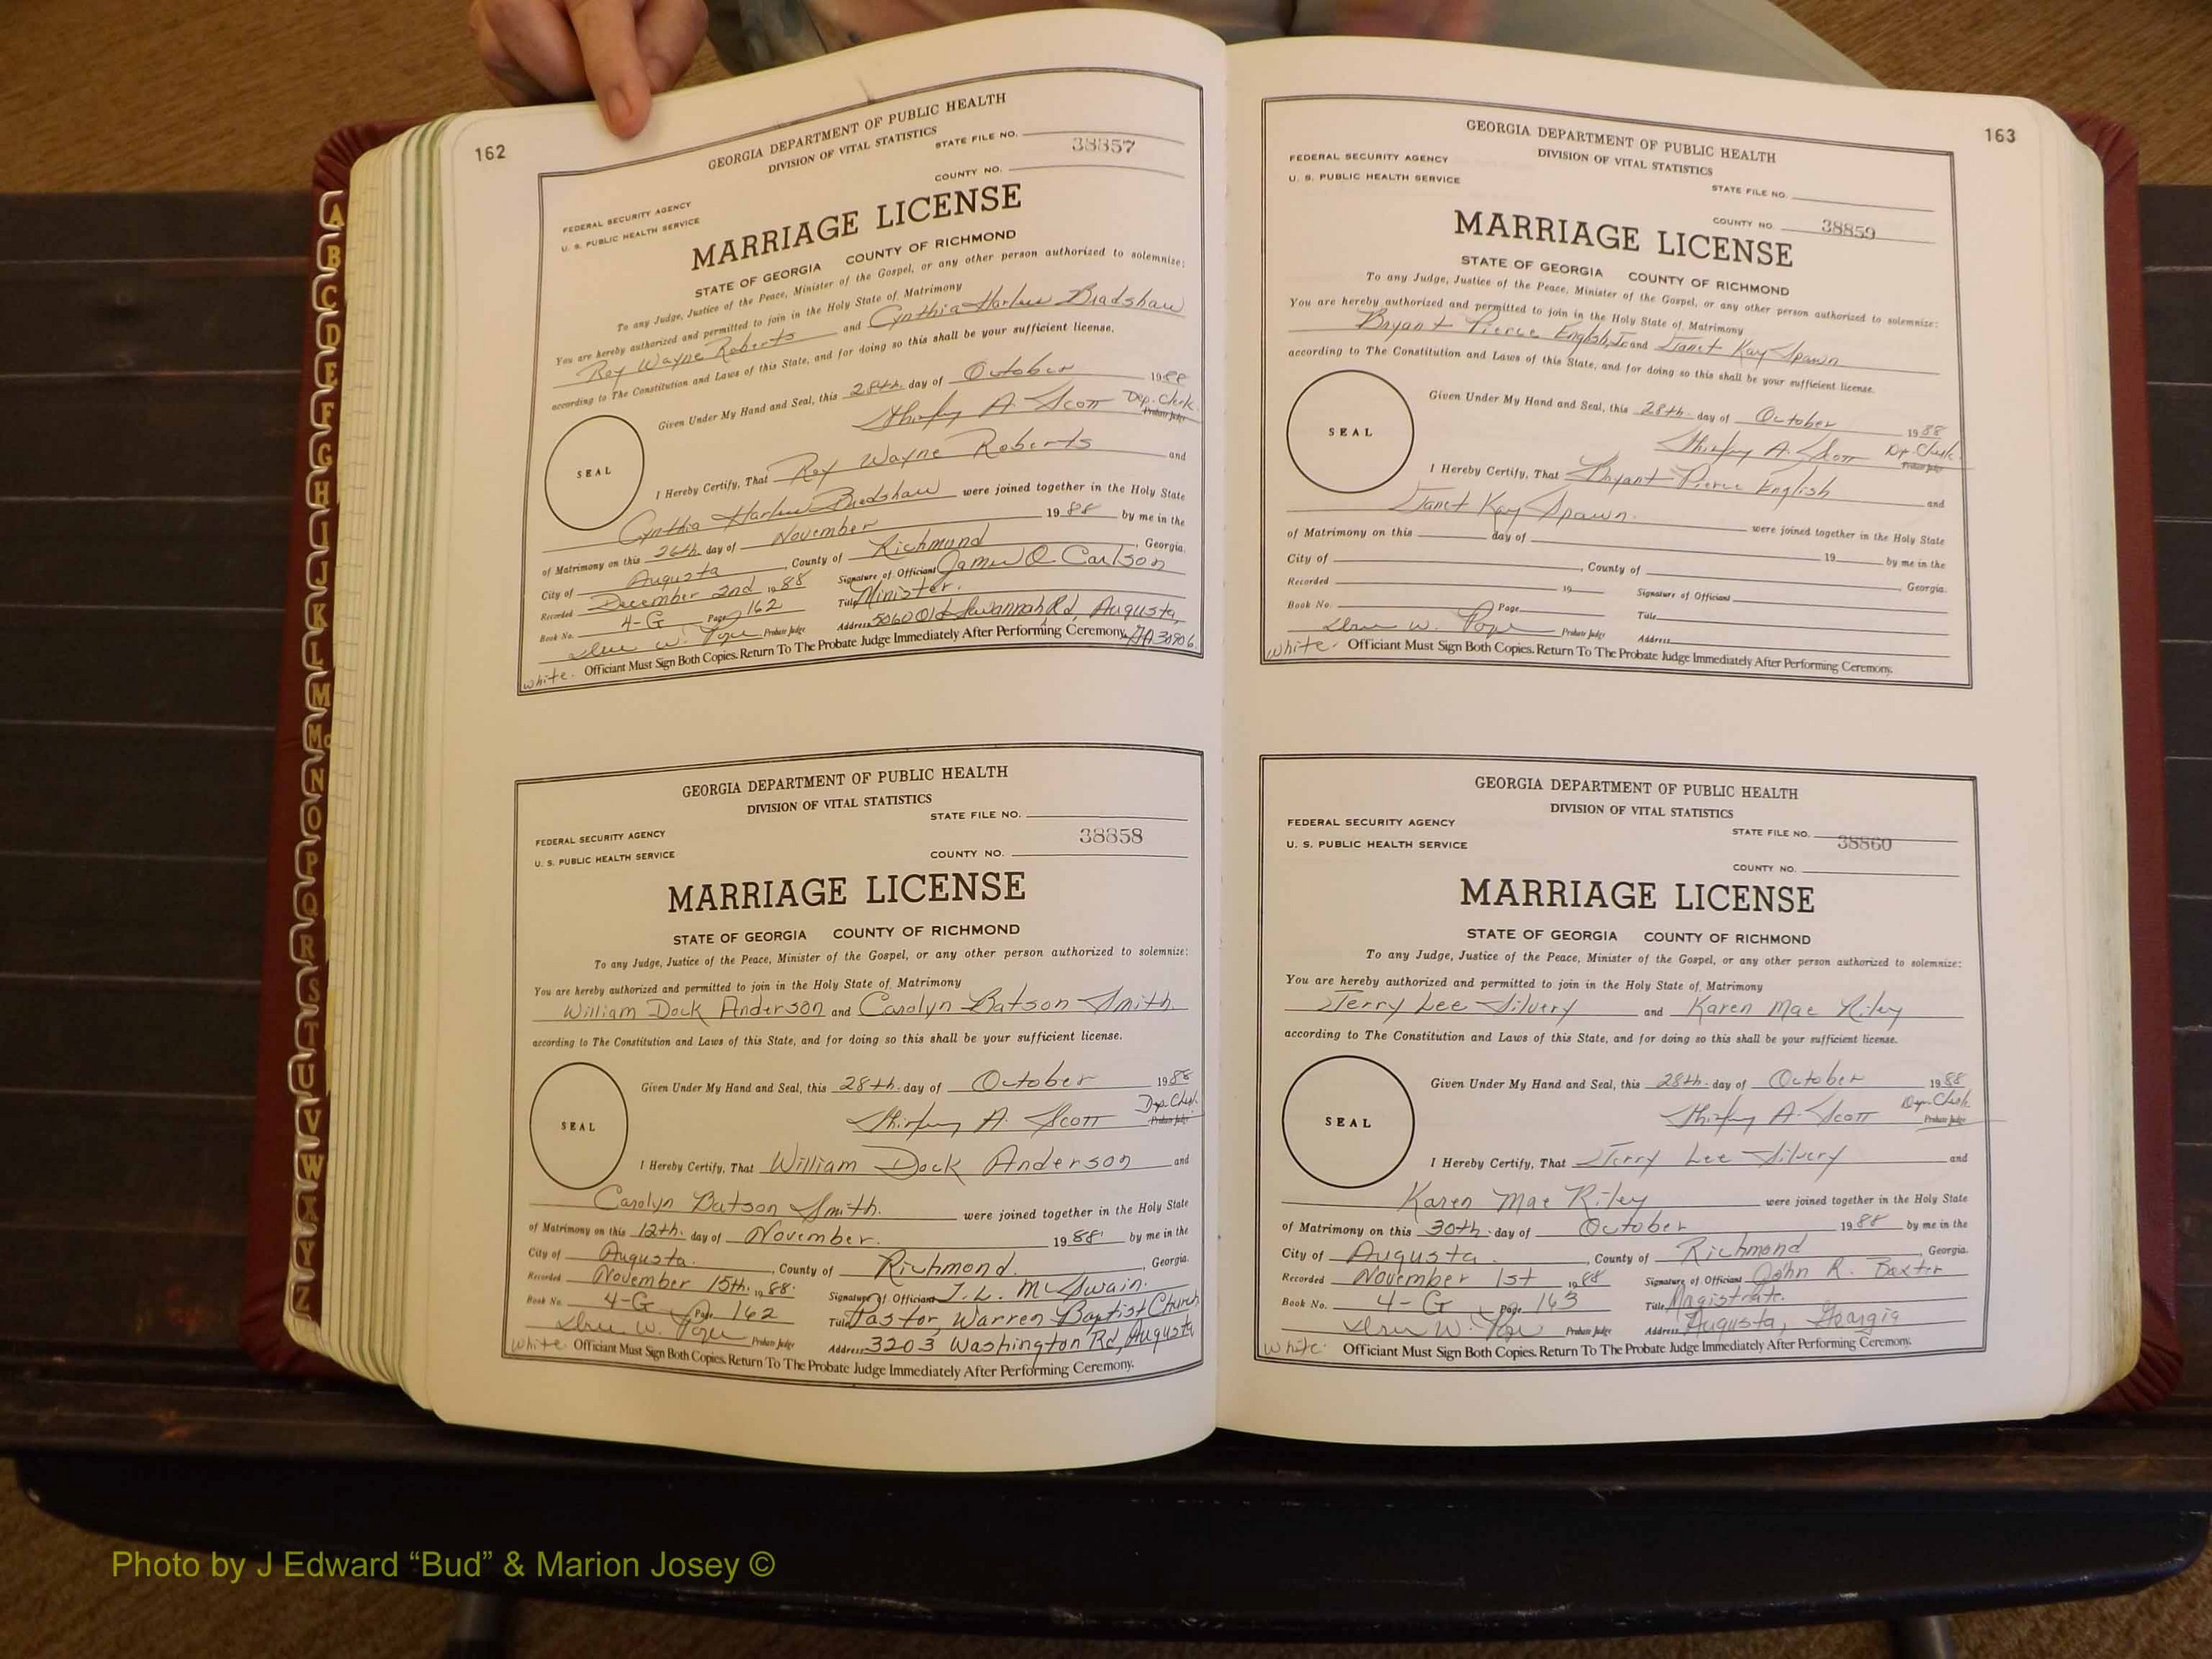 162
GEORGIA DEPARTMENT OF PUBLIC HEALTH
DIVISION OF VITAL STATISTICS
STATE FILE NO.
38857
COUNTY NO.
FEDERAL SECURITY AGENCY
U. S. PUBLIC HEALTH SERVICE
MARRIAGE LICENSE
STATE OF GEORGIA COUNTY OF RICHMOND
To any Judge, Justice of the Peace, Minister of the Gospel, or any other person authorized to solemnize:
You are hereby authorized and permitted to join in the Holy State of Matrimony
Roy Wayne Roberts and Cynthia Bradshaw
according to The Constitution and Laws of this State, and for doing so this shall be your sufficient license.
Given Under My Hand and Seal, this 28th day of October 1988
Shirley A. Scott Dep. Clerk
Probate Judge
SEAL
I Hereby Certify, That Roy Wayne Roberts and
Cynthia Bradshaw were joined together in the Holy State
of Matrimony on this 26th day of November 1988 by me in the
City of Augusta, County of Richmond, Georgia.
Recorded December 2nd 1988 Signature of Official James O. Carlson
Book No. 4-G Page 162 Title Minister.
Probate Judge Address 5060 Old Savannah Rd, Augusta, GA 30906
white. Officiant Must Sign Both Copies. Return To The Probate Judge Immediately After Performing Ceremony.
GEORGIA DEPARTMENT OF PUBLIC HEALTH
DIVISION OF VITAL STATISTICS
STATE FILE NO.
FEDERAL SECURITY AGENCY
38858
U. S. PUBLIC HEALTH SERVICE
COUNTY NO.
MARRIAGE LICENSE
STATE OF GEORGIA COUNTY OF RICHMOND
To any Judge, Justice of the Peace, Minister of the Gospel, or any other person authorized to solemnize:
You are hereby authorized and permitted to join in the Holy State of Matrimony
William Dock Anderson and Carolyn Batson Smith
according to The Constitution and Laws of this State, and for doing so this shall be your sufficient license.
Given Under My Hand and Seal, this 28th. day of October 1988
Shirley A. Scott Dep. Clerk
Probate Judge
SEAL
I Hereby Certify, That William Dock Anderson and
Carolyn Batson Smith. were joined together in the Holy State
of Matrimony on this 12th. day of November. 1988 by me in the
City of Augusta, County of Richmond. Georgia.
Recorded November 15th. 1988. Signature of Official J. L. McSwain.
Book No. 4-G Page 162 Title Pastor, Warren Baptist Church
Probate Judge Address 3203 Washington Rd, Augusta
white. Officiant Must Sign Both Copies. Return To The Probate Judge Immediately After Performing Ceremony.
163
GEORGIA DEPARTMENT OF PUBLIC HEALTH
DIVISION OF VITAL STATISTICS
FEDERAL SECURITY AGENCY
U. S. PUBLIC HEALTH SERVICE
STATE FILE NO.
COUNTY NO. 38859
MARRIAGE LICENSE
STATE OF GEORGIA COUNTY OF RICHMOND
To any Judge, Justice of the Peace, Minister of the Gospel, or any other person authorized to solemnize:
You are hereby authorized and permitted to join in the Holy State of Matrimony
Bryant Pierce English, Jr and Janet Kay Spawn
according to The Constitution and Laws of this State, and for doing so this shall be your sufficient license.
Given Under My Hand and Seal, this 28th. day of October 1988
Shirley A. Scott Dp. Clerk
Probate Judge
SEAL
I Hereby Certify, That Bryant Pierce English and
Janet Kay Spawn. were joined together in the Holy State
of Matrimony on this day of 19 by me in the
City of , County of Georgia.
Recorded 19 Signature of Official
Book No. Page Title
Probate Judge Address
white. Officiant Must Sign Both Copies. Return To The Probate Judge Immediately After Performing Ceremony.
GEORGIA DEPARTMENT OF PUBLIC HEALTH
DIVISION OF VITAL STATISTICS
FEDERAL SECURITY AGENCY
U. S. PUBLIC HEALTH SERVICE
STATE FILE NO. 38860
COUNTY NO.
MARRIAGE LICENSE
STATE OF GEORGIA COUNTY OF RICHMOND
To any Judge, Justice of the Peace, Minister of the Gospel, or any other person authorized to solemnize:
You are hereby authorized and permitted to join in the Holy State of Matrimony
Terry Lee Silvery and Karen Mae Riley
according to The Constitution and Laws of this State, and for doing so this shall be your sufficient license.
Given Under My Hand and Seal, this 28th. day of October 1988
Shirley A. Scott Dep. Clerk
Probate Judge
SEAL
I Hereby Certify, That Terry Lee Silvery and
Karen Mae Riley were joined together in the Holy State
of Matrimony on this 30th. day of October 1988 by me in the
City of Augusta, County of Richmond, Georgia.
Recorded November 1st 1988 Signature of Official John R. Baxter
Book No. 4-G Page 163 Title Magistrate.
Probate Judge Address Augusta, Georgia
white. Officiant Must Sign Both Copies. Return To The Probate Judge Immediately After Performing Ceremony.
A
B
C
D
E
F
G
H
I
J
K
L
M
Mc
N
O
P
Q
R
S
T
U
V
W
X
Y
Z
Photo by J Edward “Bud” & Marion Josey ©